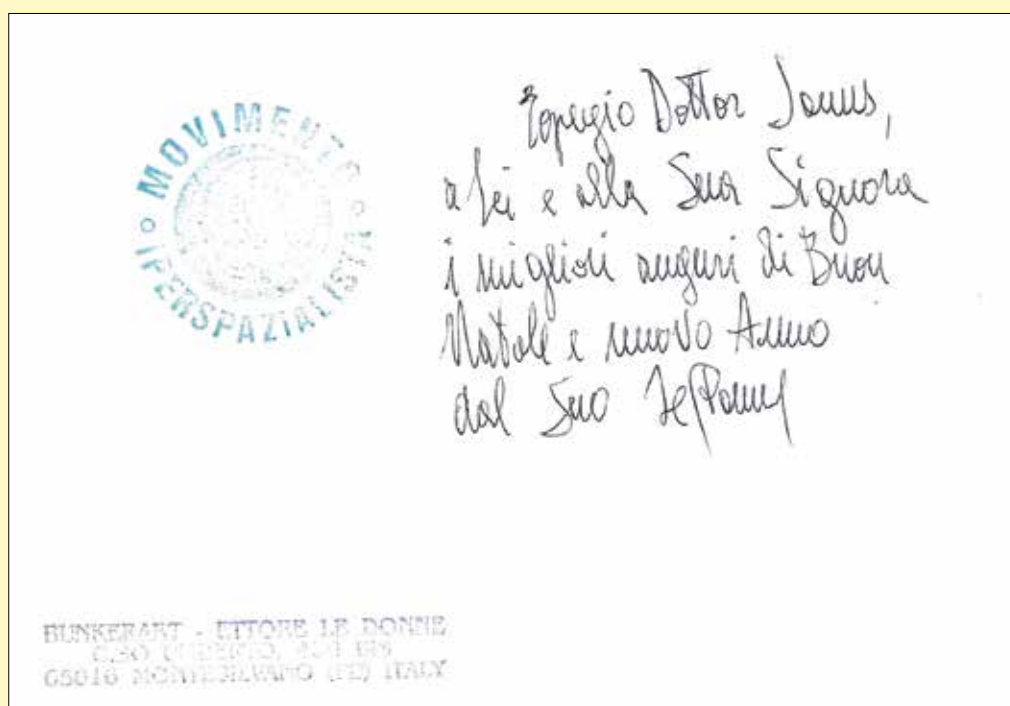 MOVIMENTO
IPERSPAZIALISTA
Egregio Dottor Janus,
a Lei e alla Sua Signora
i migliori auguri di Buon
Natale e nuovo Anno
dal Suo
BUNKERART - ETTORE LE DONNE
C.SO UMBERTO,
65016 MONTESILVANO (PE) ITALY